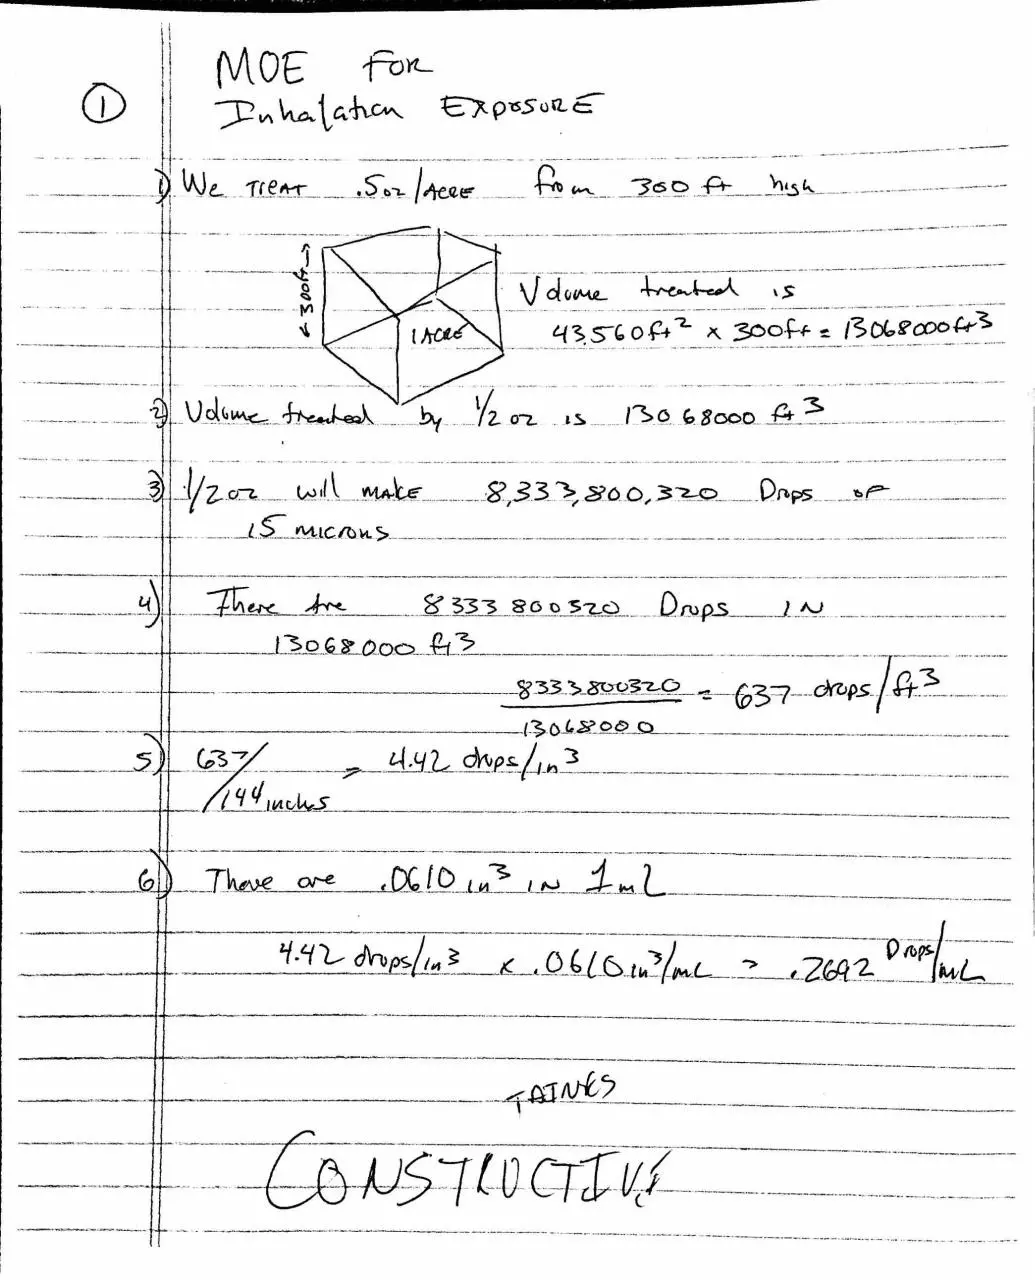 MOE FOR
①
Inhalation EXPOSURE
1) We TREAT .5oz/ACRE from 300 ft high
300ft
1 ACRE
Volume treated is
43,560ft² x 300ft = 13068000ft3
2) Volume treated by 1/2 oz is 13068000 ft3
3) 1/2 oz will MAKE 8,333,800,320 Drops OF
15 microns
4) There Are 8333800320 Drops IN
13068000 ft3
8333800320 / 13068000 = 637 drops/ft3
5) 637/144 inches = 4.42 drops/in3
6) There are .0610 in3 IN 1 mL
4.42 drops/in3 x .0610 in3/mL = .2692 Drops/mL
CONSTRUCTIVE